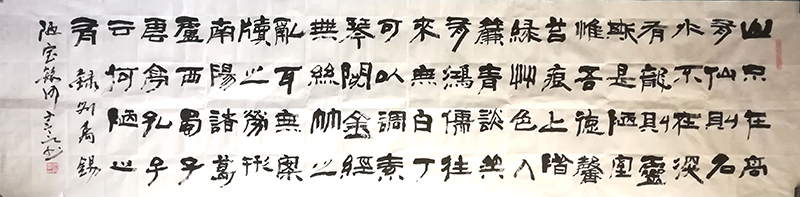 山不在高
有仙則名
水不在深
有龍則靈
斯是陋室
惟吾德馨
苔痕上階
緑艸色入
簾青談笑
有鴻儒往
來無白丁
可以調素
琴閱金經
無絲竹之
亂耳無案
牘之勞形
南陽諸葛
廬西蜀子
雲亭孔子
云何陋之
有 錄劉禹錫
陋室銘